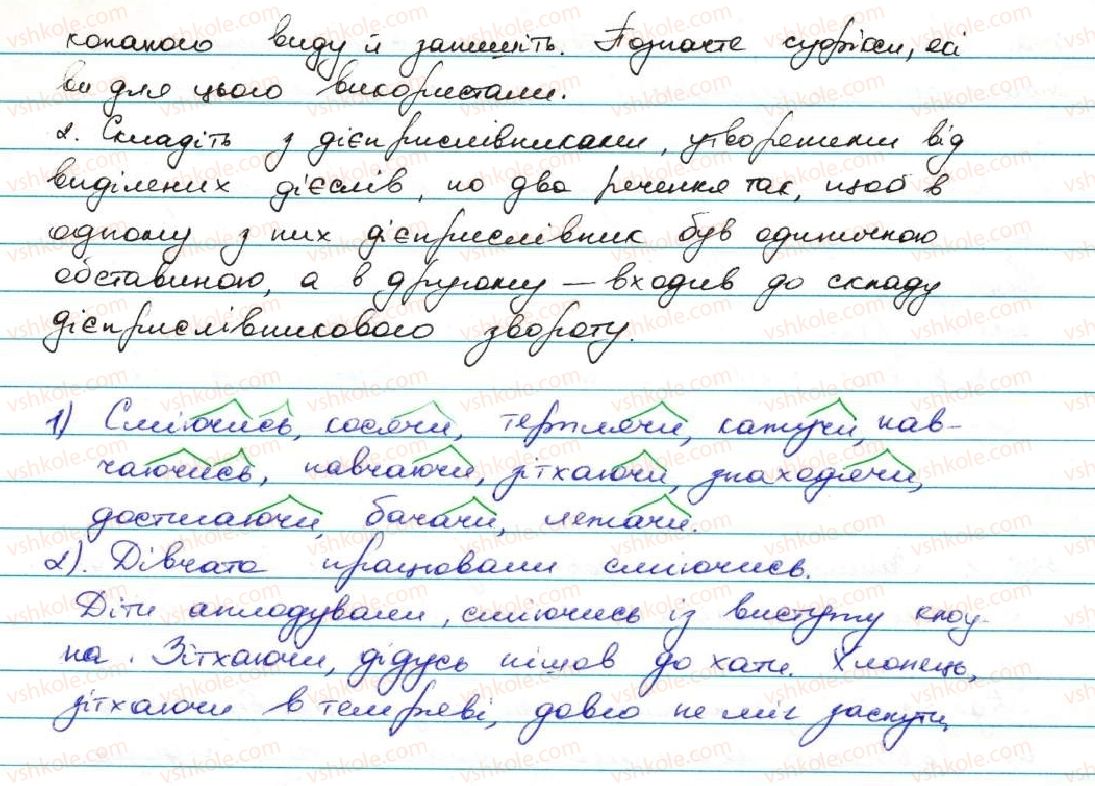 конаного виду й запишіть. Позначте суфікси, які
ви для цього використали.
2. Складіть з дієприслівниками, утвореними від
виділених дієслів, по два речення так, щоб в
одному з них дієприслівник був одиничною
обставиною, а в другому – входив до складу
дієприслівникового звороту.
1) Сміючись, косячи, терплячи, кажучи, нав-
чаючись, навчаючи, зітхаючи, знаходячи,
достигаючи, бачачи, лежачи.
2). Дівчата працювали сміючись.
Діти аплодували, сміючись із виступу клоу-
на. Зітхаючи, дідусь пішов до хати. Хлопець,
зітхаючи в темряві, довго не міг заснути.